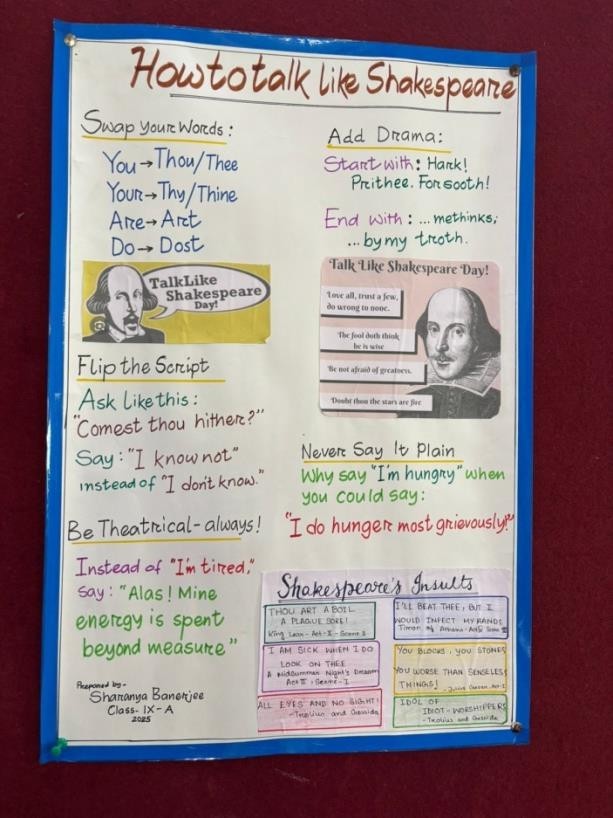 How to talk like Shakespeare
Swap Your Words:
You → Thou/Thee
Your → Thy/Thine
Are → Art
Do → Dost
Talk Like
Shakespeare
Day!
Flip the Script
Ask Like this:
"Comest thou hither?"
Say: "I know not"
instead of "I don't know."
Be Theatrical - always!
Instead of "I'm tired,"
say: "Alas! Mine
energy is spent
beyond measure"
Prepared by -
Sharanya Banerjee
Class- IX - A
2025
Add Drama:
Start with: Hark!
Prithee. Forsooth!
End with: ... methinks;
... by my troth.
Talk Like Shakespeare Day!
Love all, trust a few,
do wrong to none.
The fool doth think
he is wise
Be not afraid of greatness.
Doubt thou the stars are fire
Never Say It Plain
Why say "I'm hungry" when
you could say:
"I do hunger most grievously!"
Shakespeare's Insults
THOU ART A BOIL
A PLAGUE SORE!
King Lear - Act-II - Scene
I AM SICK WHEN I DO
LOOK ON THEE
A Midsummer Night's Dream
Act II, Scene - I
ALL EYES AND NO SIGHT!
- Troilus and Cressida
I'LL BEAT THEE, BUT I
WOULD INFECT MY HANDS
Timon of Athens - Act
YOU BLOCKS, YOU STONES
YOU WORSE THAN SENSELESS
THINGS! - Julius Caesar, Act-I
IDOL OF
IDIOT - WORSHIPPERS
- Troilus and Cressida